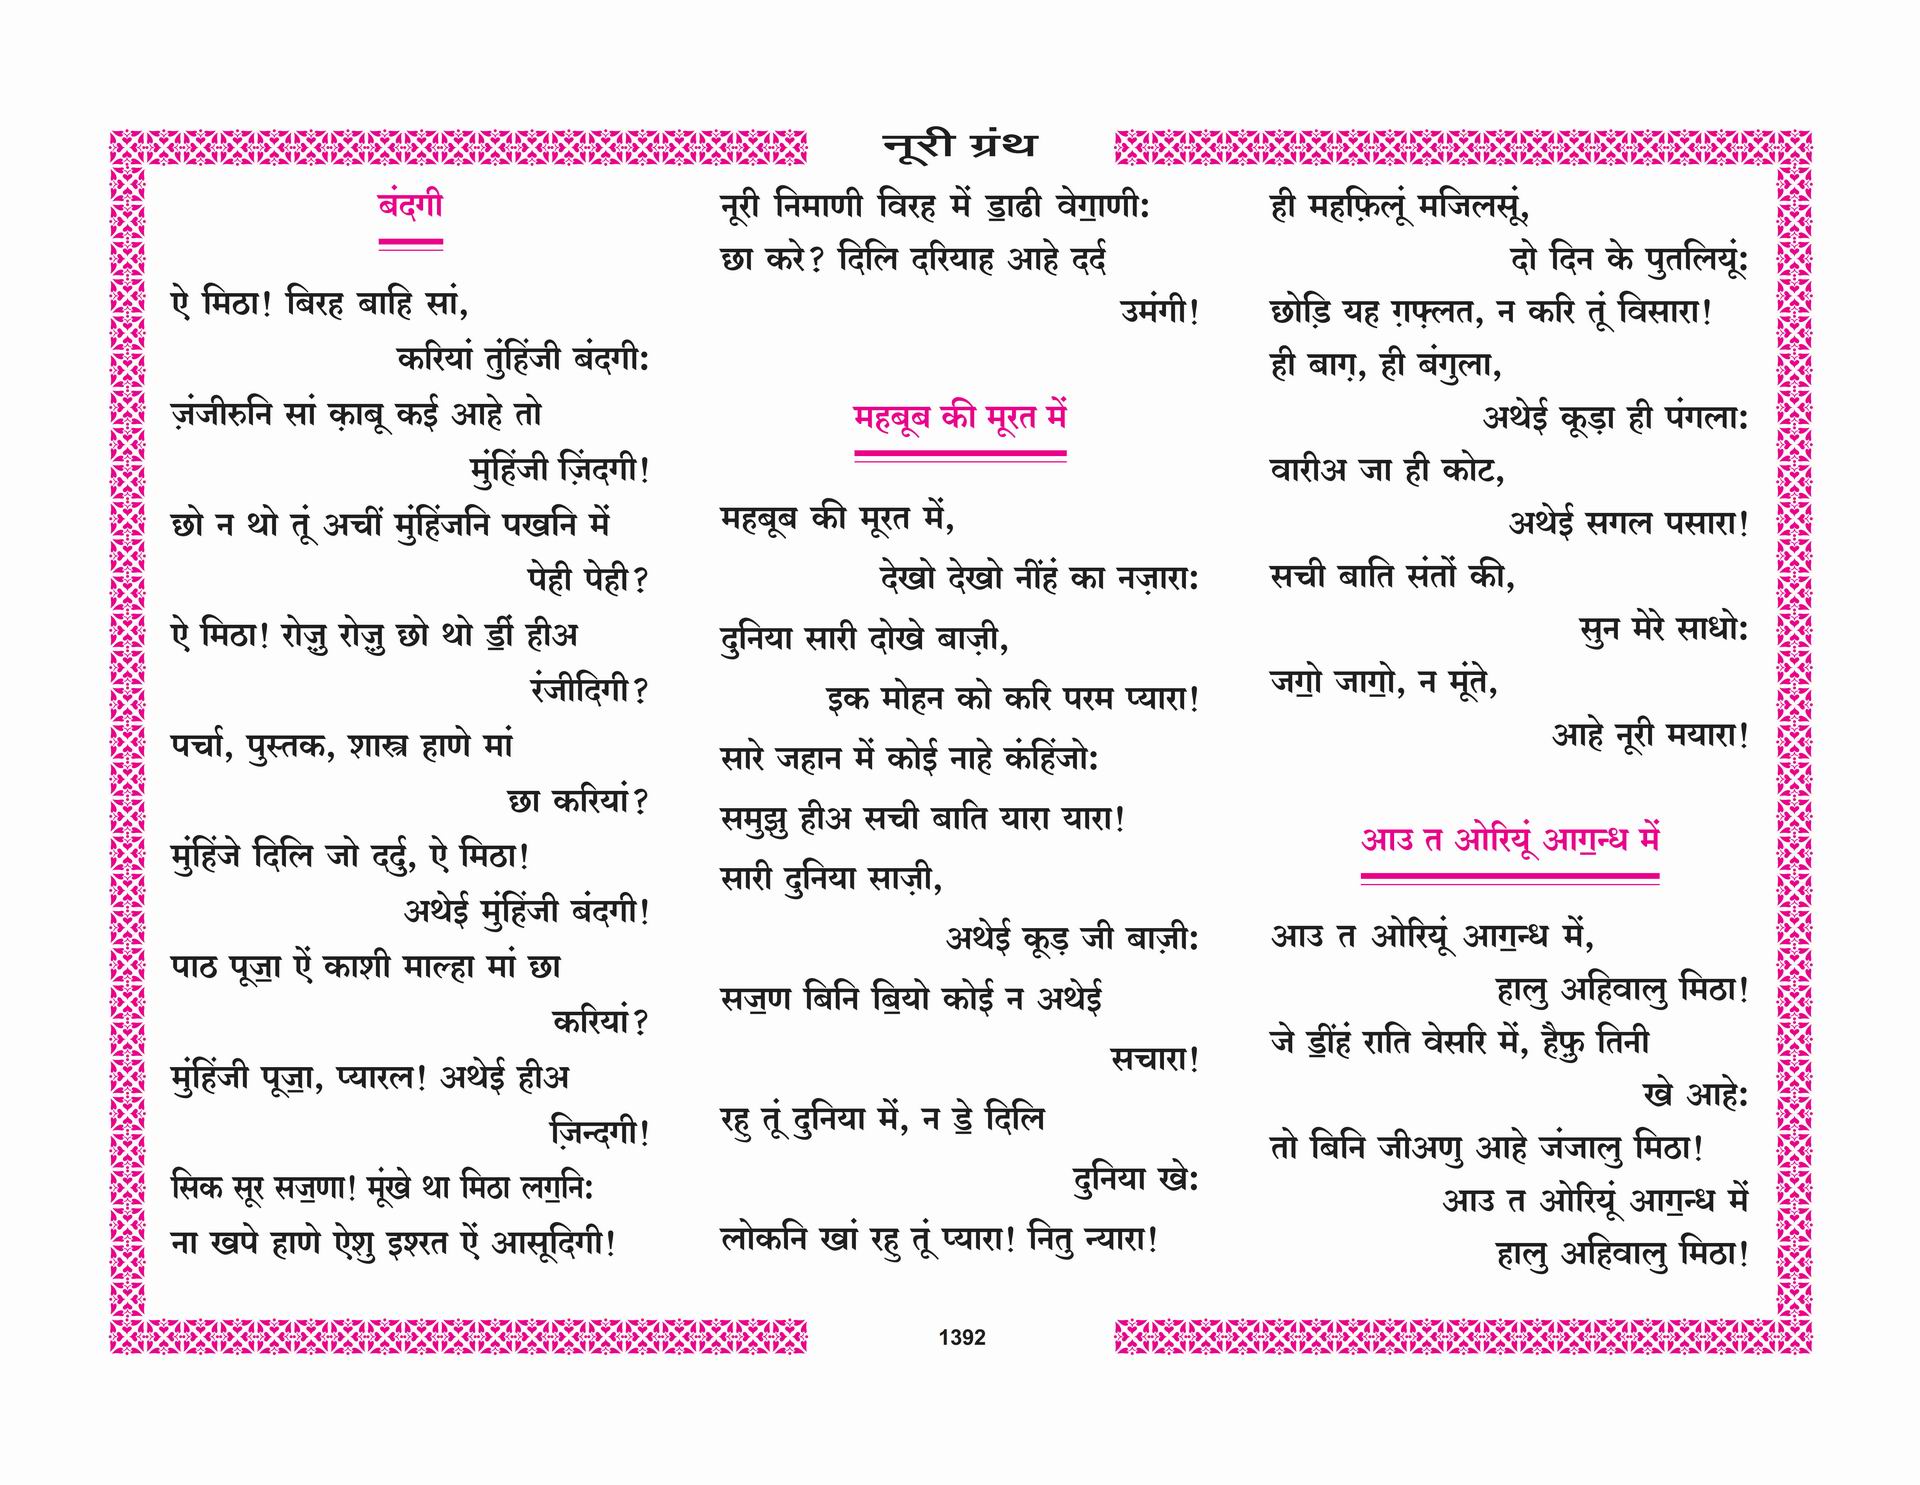 नूरी ग्रंथ
बंदगी
ऐ मिठा! बिरह बाहि सां,
करियां तुंहिंजी बंदगी:
ज़ंजीरुनि सां क़ाबू कई आहे तो
मुंहिंजी ज़िंदगी!
छो न थो तूं अचीं मुंहिंजनि पखनि में
पेही पेही?
ऐ मिठा! रोज़ु रोज़ु छो थो ॾीं हीअ
रंजीदिगी?
पर्चा, पुस्तक, शास्त्र हाणे मां
छा करियां?
मुंहिंजे दिलि जो दर्दु, ऐ मिठा!
अथेई मुंहिंजी बंदगी!
पाठ पूॼा ऐं काशी माल्हा मां छा
करियां?
मुंहिंजी पूॼा, प्यारल! अथेई हीअ
ज़िन्दगी!
सिक सूर सॼणा! मूंखे था मिठा लॻनि:
ना खपे हाणे ऐशु इश्रत ऐं आसूदिगी!
नूरी निमाणी विरह में ॾाढी वेॻाणी:
छा करे? दिलि दरियाह आहे दर्द
उमंगी!
महबूब की मूरत में
महबूब की मूरत में,
देखो देखो नींहं का नज़ारा:
दुनिया सारी दोखे बाज़ी,
इक मोहन को करि परम प्यारा!
सारे जहान में कोई नाहे कंहिंजो:
समुझु हीअ सची बाति यारा यारा!
सारी दुनिया साज़ी,
अथेई कूड़ जी बाज़ी:
सॼण बिनि ॿियो कोई न अथेई
सचारा!
रहु तूं दुनिया में, न ॾे दिलि
दुनिया खे:
लोकनि खां रहु तूं प्यारा! नितु न्यारा!
ही महफ़िलूं मजिलसूं,
दो दिन के पुतलियूं:
छोड़ि यह ग़फ़्लत, न करि तूं विसारा!
ही बाग़, ही बंगुला,
अथेई कूड़ा ही पंगला:
वारीअ जा ही कोट,
अथेई सगल पसारा!
सची बाति संतों की,
सुन मेरे साधो:
जॻो जाॻो, न मूंते,
आहे नूरी मयारा!
आउ त ओरियूं आॻन्ध में
आउ त ओरियूं आॻन्ध में,
हालु अहिवालु मिठा!
जे ॾींहं राति वेसरि में, हैफ़ु तिनी
खे आहे:
तो बिनि जीअणु आहे जंजालु मिठा!
आउ त ओरियूं आॻन्ध में
हालु अहिवालु मिठा!
1392